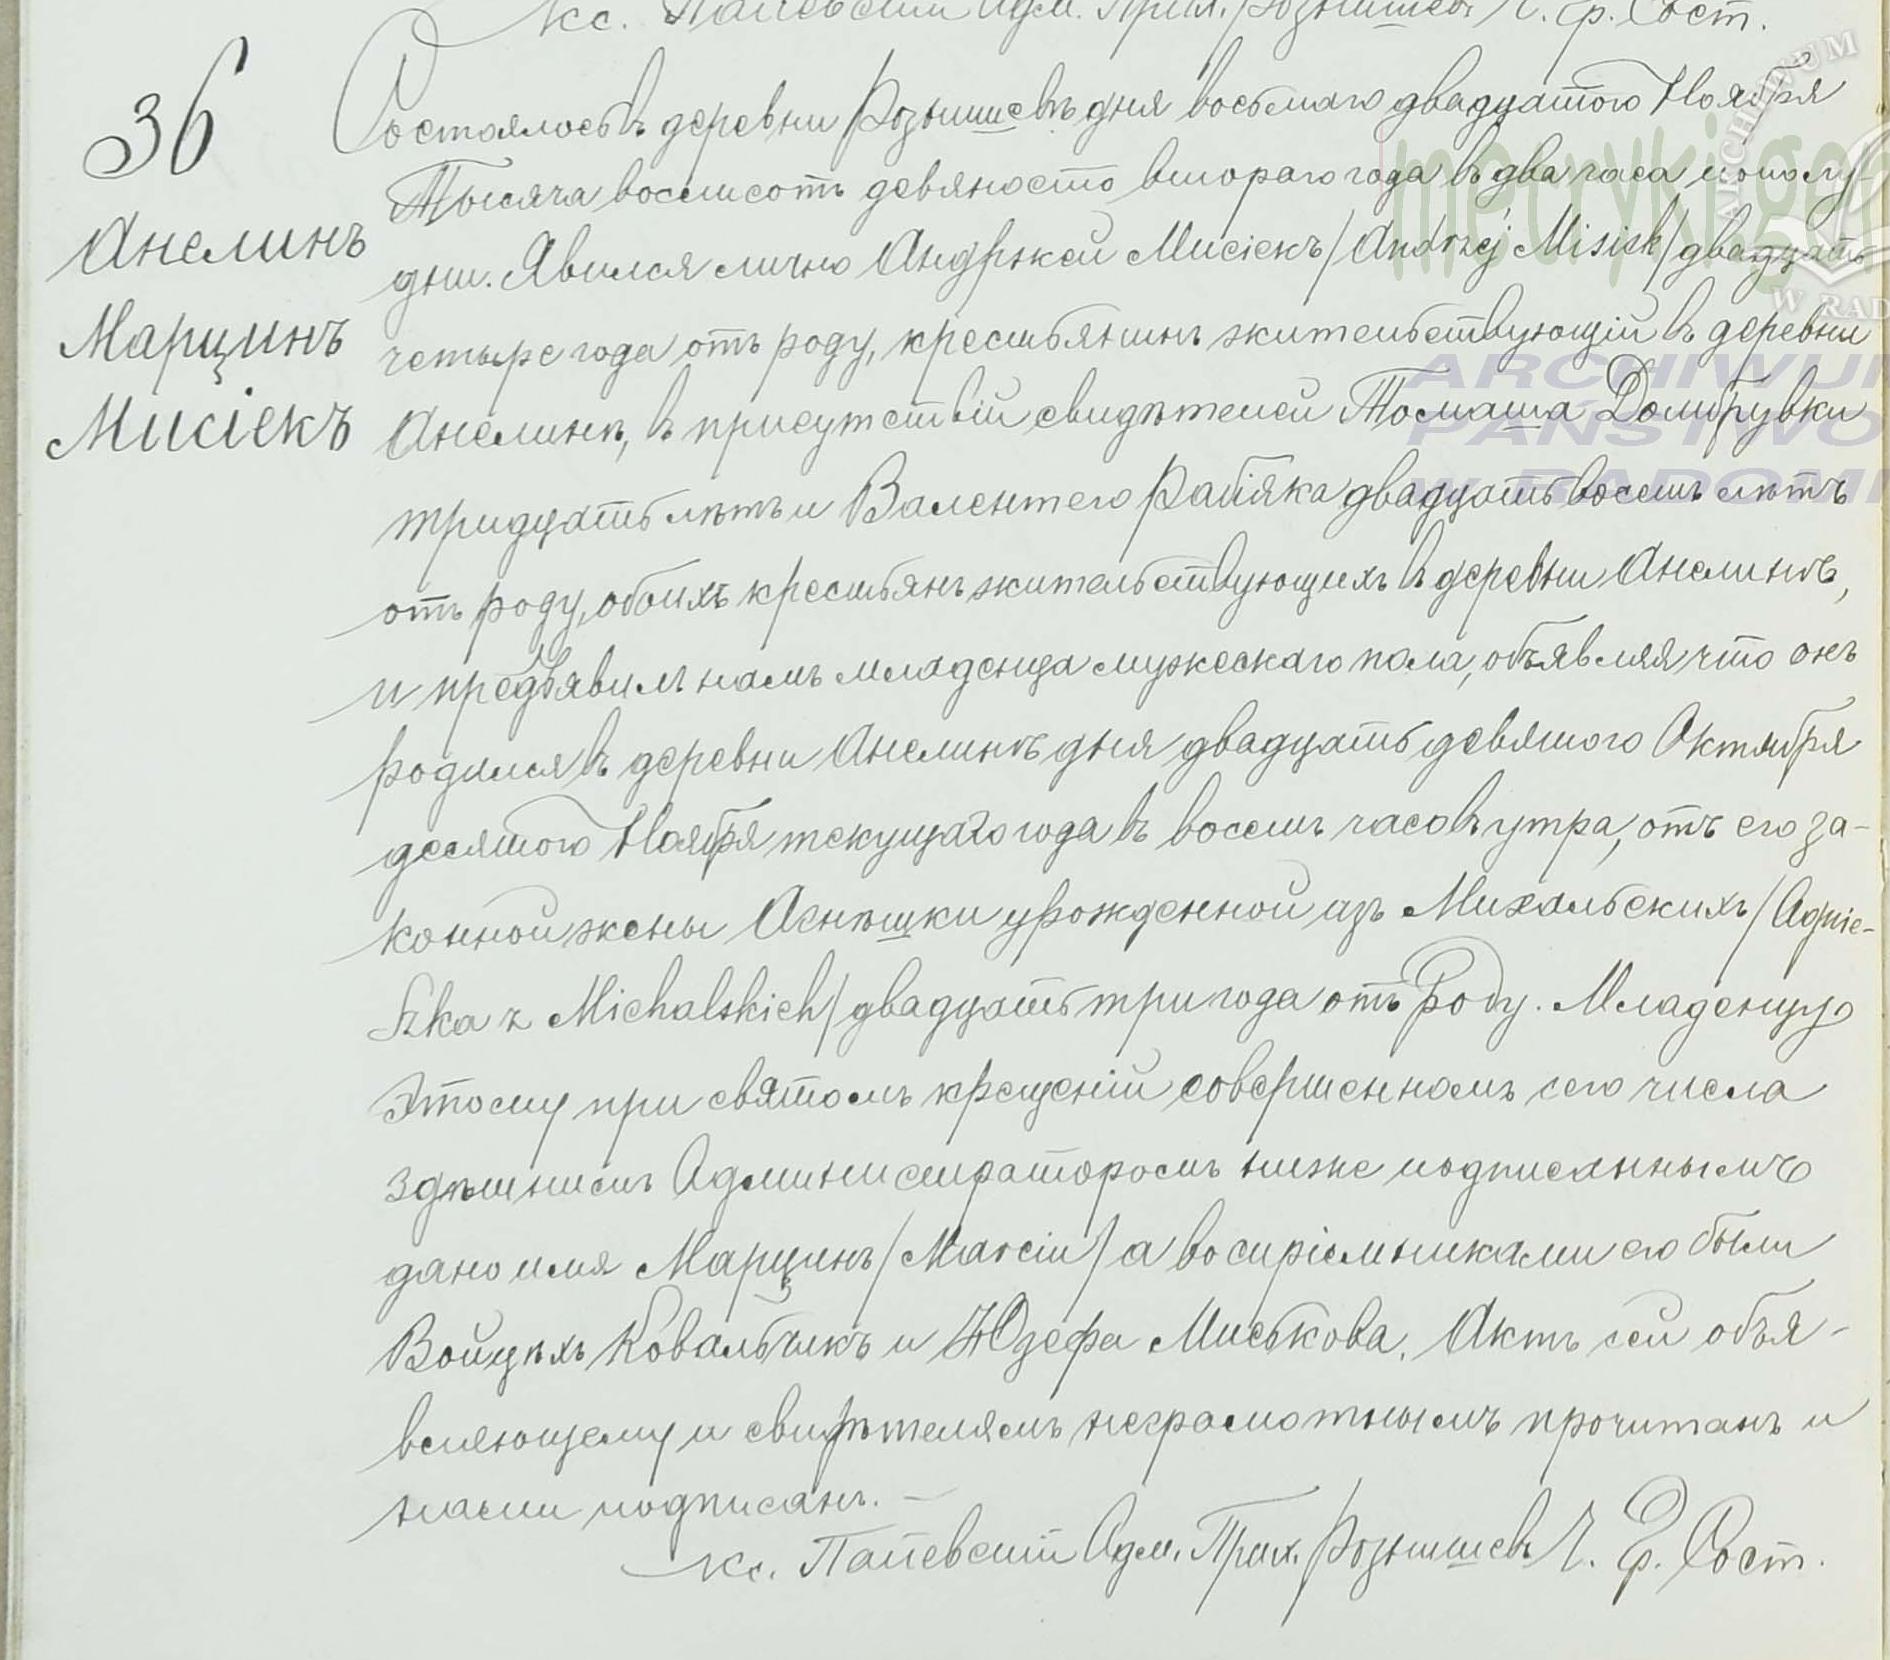 Кс. Папевскій Адм. Прих. Рознишевъ Ч. Гр. Сост.
36
Анелинъ
Марцинъ
Мисіекъ
Состоялось въ деревни Рознишевѣ дня восьмаго двадцатого Ноября
Тысяча восемсотъ девяносто втораго года въ два часа пополу-
дни. Явился лично Андржей Мисіекъ /Andrzej Misiek/ двадцать
четыре года отъ роду, крестьянинъ жительствующій въ деревни
Анелинѣ, въ присутствіи свидѣтелей Томаша Домбрувки
тридцать лѣтъ и Валентего двадцать восемъ лѣтъ
отъ роду, обоихъ крестьянъ жительствующихъ въ деревни Анелинѣ,
и предъявилъ намъ младенца мужескаго пола, объявляя что онъ
родился въ деревни Анелинѣ дня двадцать девятого Октября
десятого Ноября текущаго года въ восемъ часовъ утра, отъ его за-
конной жены Агнѣшки урожденной изъ Михальскихъ /Agnie-
szka z Michalskich/ двадцать три года отъ роду. Младенцу
этому при святомъ крещеніи совершенномъ сего числа
здѣшнимъ Администраторомъ ниже подписаннымъ
дано имя Марцинъ /Marcin/ а воспріемниками его были
Войцѣхъ Ковальчикъ и Юзефа Миськова. Актъ сей объя-
вляющему и свидѣтелямъ неграмотнымъ прочитанъ и
нами подписанъ. —
Кс. Папевскій Адм. Прих. Рознишевъ Ч. Гр. Сост.
metryki.gen
ARCHIWUM
W RAD
ARCHIWUM
PAŃSTWO
W RADOMI